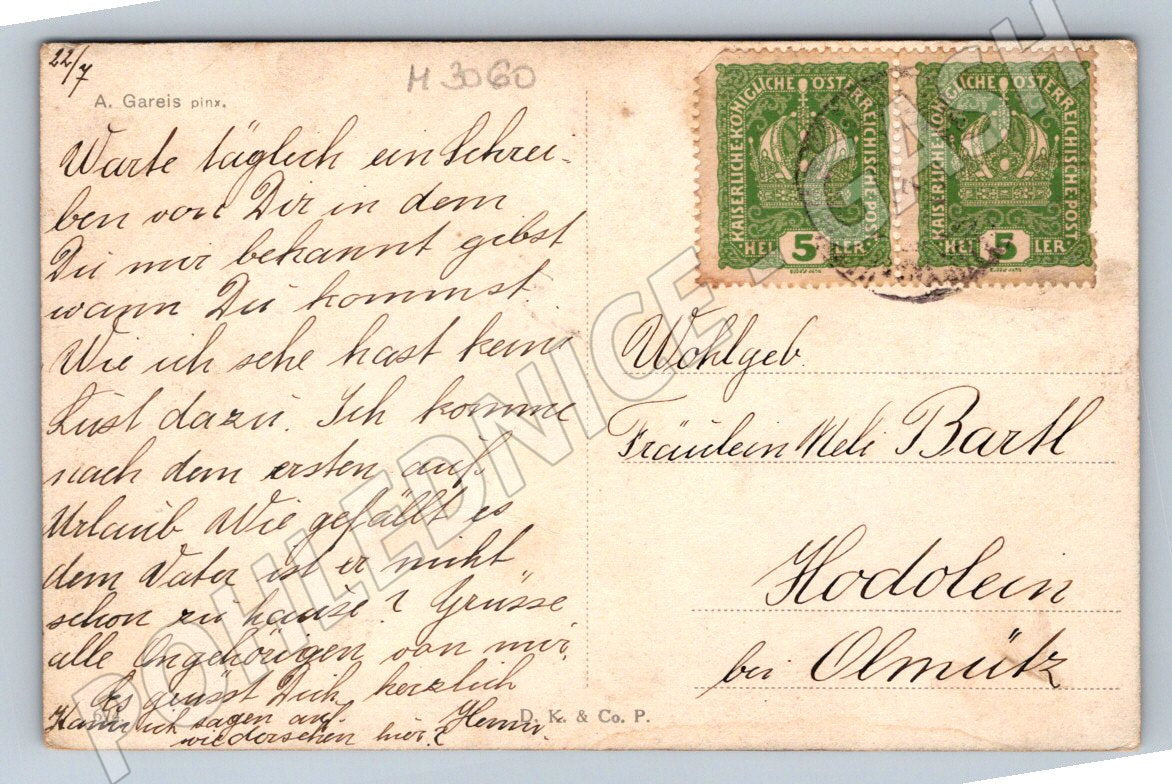 22/7
M 3060
A. Gareis pinx.
Warte täglich ein Schrei-
ben von Dir in dem
Du mir bekannt gebst
wann Du kommst.
Wie ich sehe hast keine
Lust dazu. Ich komme
nach dem ersten auf
Urlaub Wie gefällt es
dem Vater ist er nicht
schon zu hause? Grüsse
alle Angehörigen von mir.
Es grüsst Dich herzlich
Kann ich sagen auf
wiedersehen hier?
KAISERLICHE KÖNIGLICHE ÖSTERREICHISCHE POST
HELLER
5
KAISERLICHE KÖNIGLICHE ÖSTERREICHISCHE POST
HELLER
5
Wohlgeb.
Fräulein Meli Bartl
Hodolein
bei Olmütz
D. K. & Co. P.
POHLEDNICE - GASH